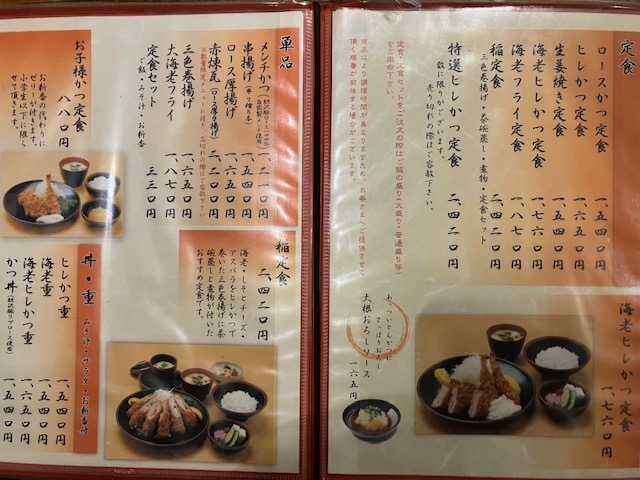 定食
ロースかつ定食 一、五四〇円
ヒレかつ定食 一、六五〇円
生姜焼き定食 一、五四〇円
海老ヒレかつ定食 一、七六〇円
海老フライ定食 一、八七〇円
稲定食 二、四二〇円
三色巻揚げ・茶碗蒸し・煮物・定食セット
特選ヒレかつ定食 二、四二〇円
数に限りがございます。
売り切れの際はご容赦下さい。
定食・定食セットをご注文の際はご飯の盛り(大盛り・普通盛り等)
をご用命下さい。
商品により調理時間が異なりますため、お客さまへご提供させて
頂く順番が前後する場合がございます。
海老ヒレかつ定食
一、七六〇円
あついとんかつに
さっぱりおろし
大根おろしソース
一六五円
単品
メンチかつ 一、二一〇円
串揚げ 一、五四〇円
ロース厚揚げ 二、二〇〇円
赤煉瓦(ロース厚切り揚げ) 二、四二〇円
三色巻揚げ 一、六五〇円
大海老フライ 一、八七〇円
定食セット 三三〇円
ご飯・みそ汁・お新香
お子様かつ定食
八八〇円
お新香の代わりに
ゼリーが付きます。
小学生以下に限ら
せて頂きます。
稲定食
二、四二〇円
海老・しそとチーズ・
アスパラをヒレかつで
巻いた三色巻揚げに茶
碗蒸しと煮物が付いた
おすすめ定食です。
丼・重
みそ汁・サラダ・お新香付
ヒレかつ重 一、五四〇円
海老重 一、五四〇円
海老ヒレかつ重 一、六五〇円
かつ丼 一、五四〇円